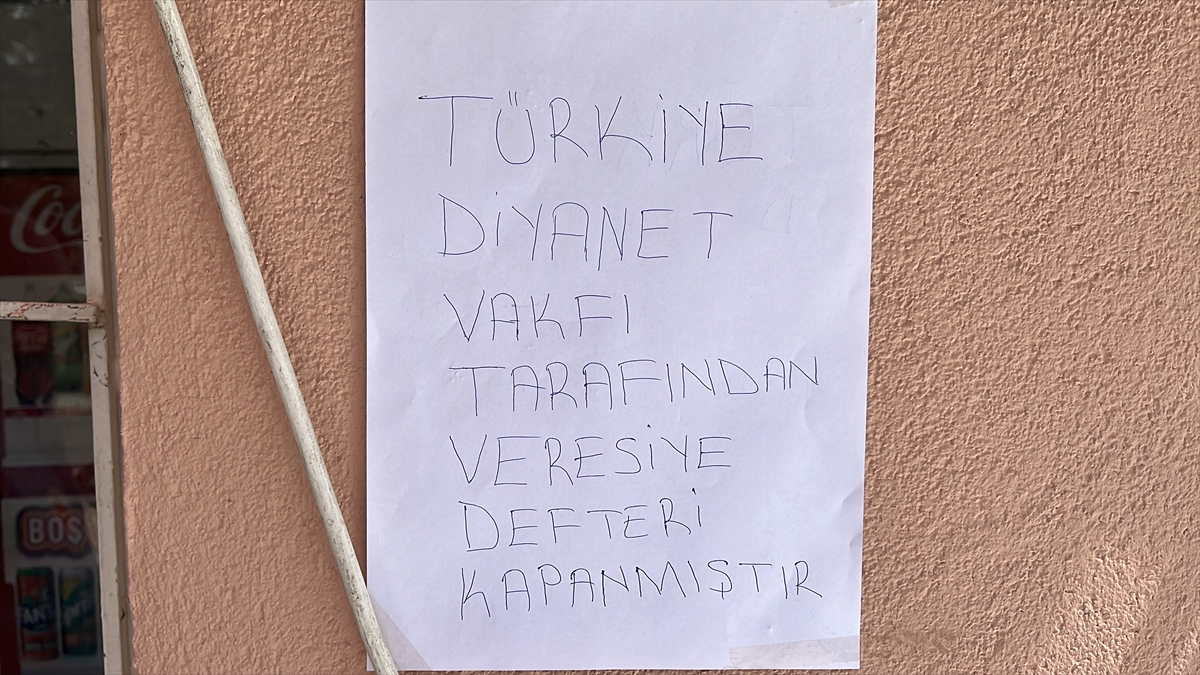 TÜRKİYE
DİYANET
VAKFI
TARAFINDAN
VERESİYE
DEFTERİ
KAPANMIŞTIR
Coc
BOS
FANT